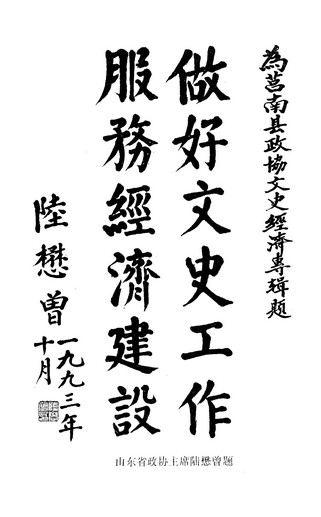 為莒南县政協文史經濟專辑题
做好文史工作
服務經濟建設
陸懋曾
一九九三年
十月
山东省政协主席陆懋曾题